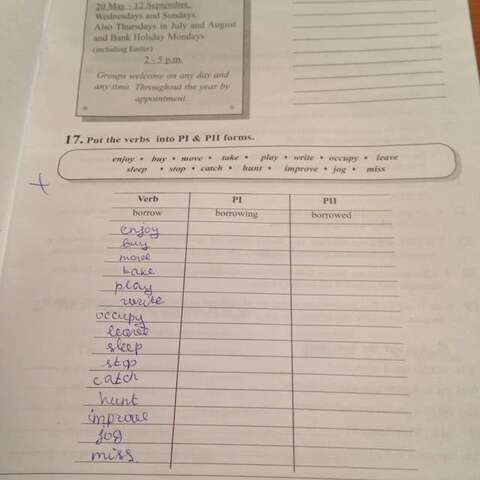 20 May - 12 September,
Wednesdays and Sundays.
Also Thursdays in July and August
and Bank Holiday Mondays
(including Easter)
2 - 5 p.m.
Groups welcome on any day and
any time Throughout the year by
appointment.
17. Put the verbs into PI & PII forms.
enjoy • buy • move • take • play • write • occupy • leave
sleep • stop • catch • hunt • improve • jog • miss
+
Verb PI PII
borrow borrowing borrowed
enjoy
buy
move
take
play
write
occupy
leave
sleep
stop
catch
hunt
improve
jog
miss